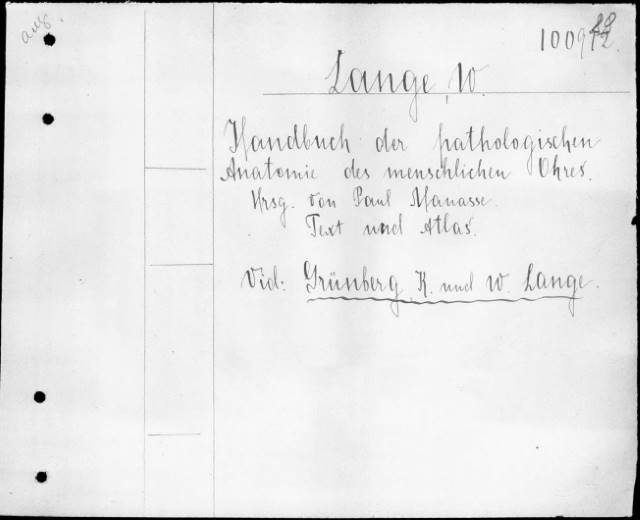 Lange, W.
Handbuch der pathologischen
Anatomie des menschlichen Ohres.
Hrsg. von Paul Manasse.
Text und Atlas.
Vid: Grünberg K. und W. Lange.